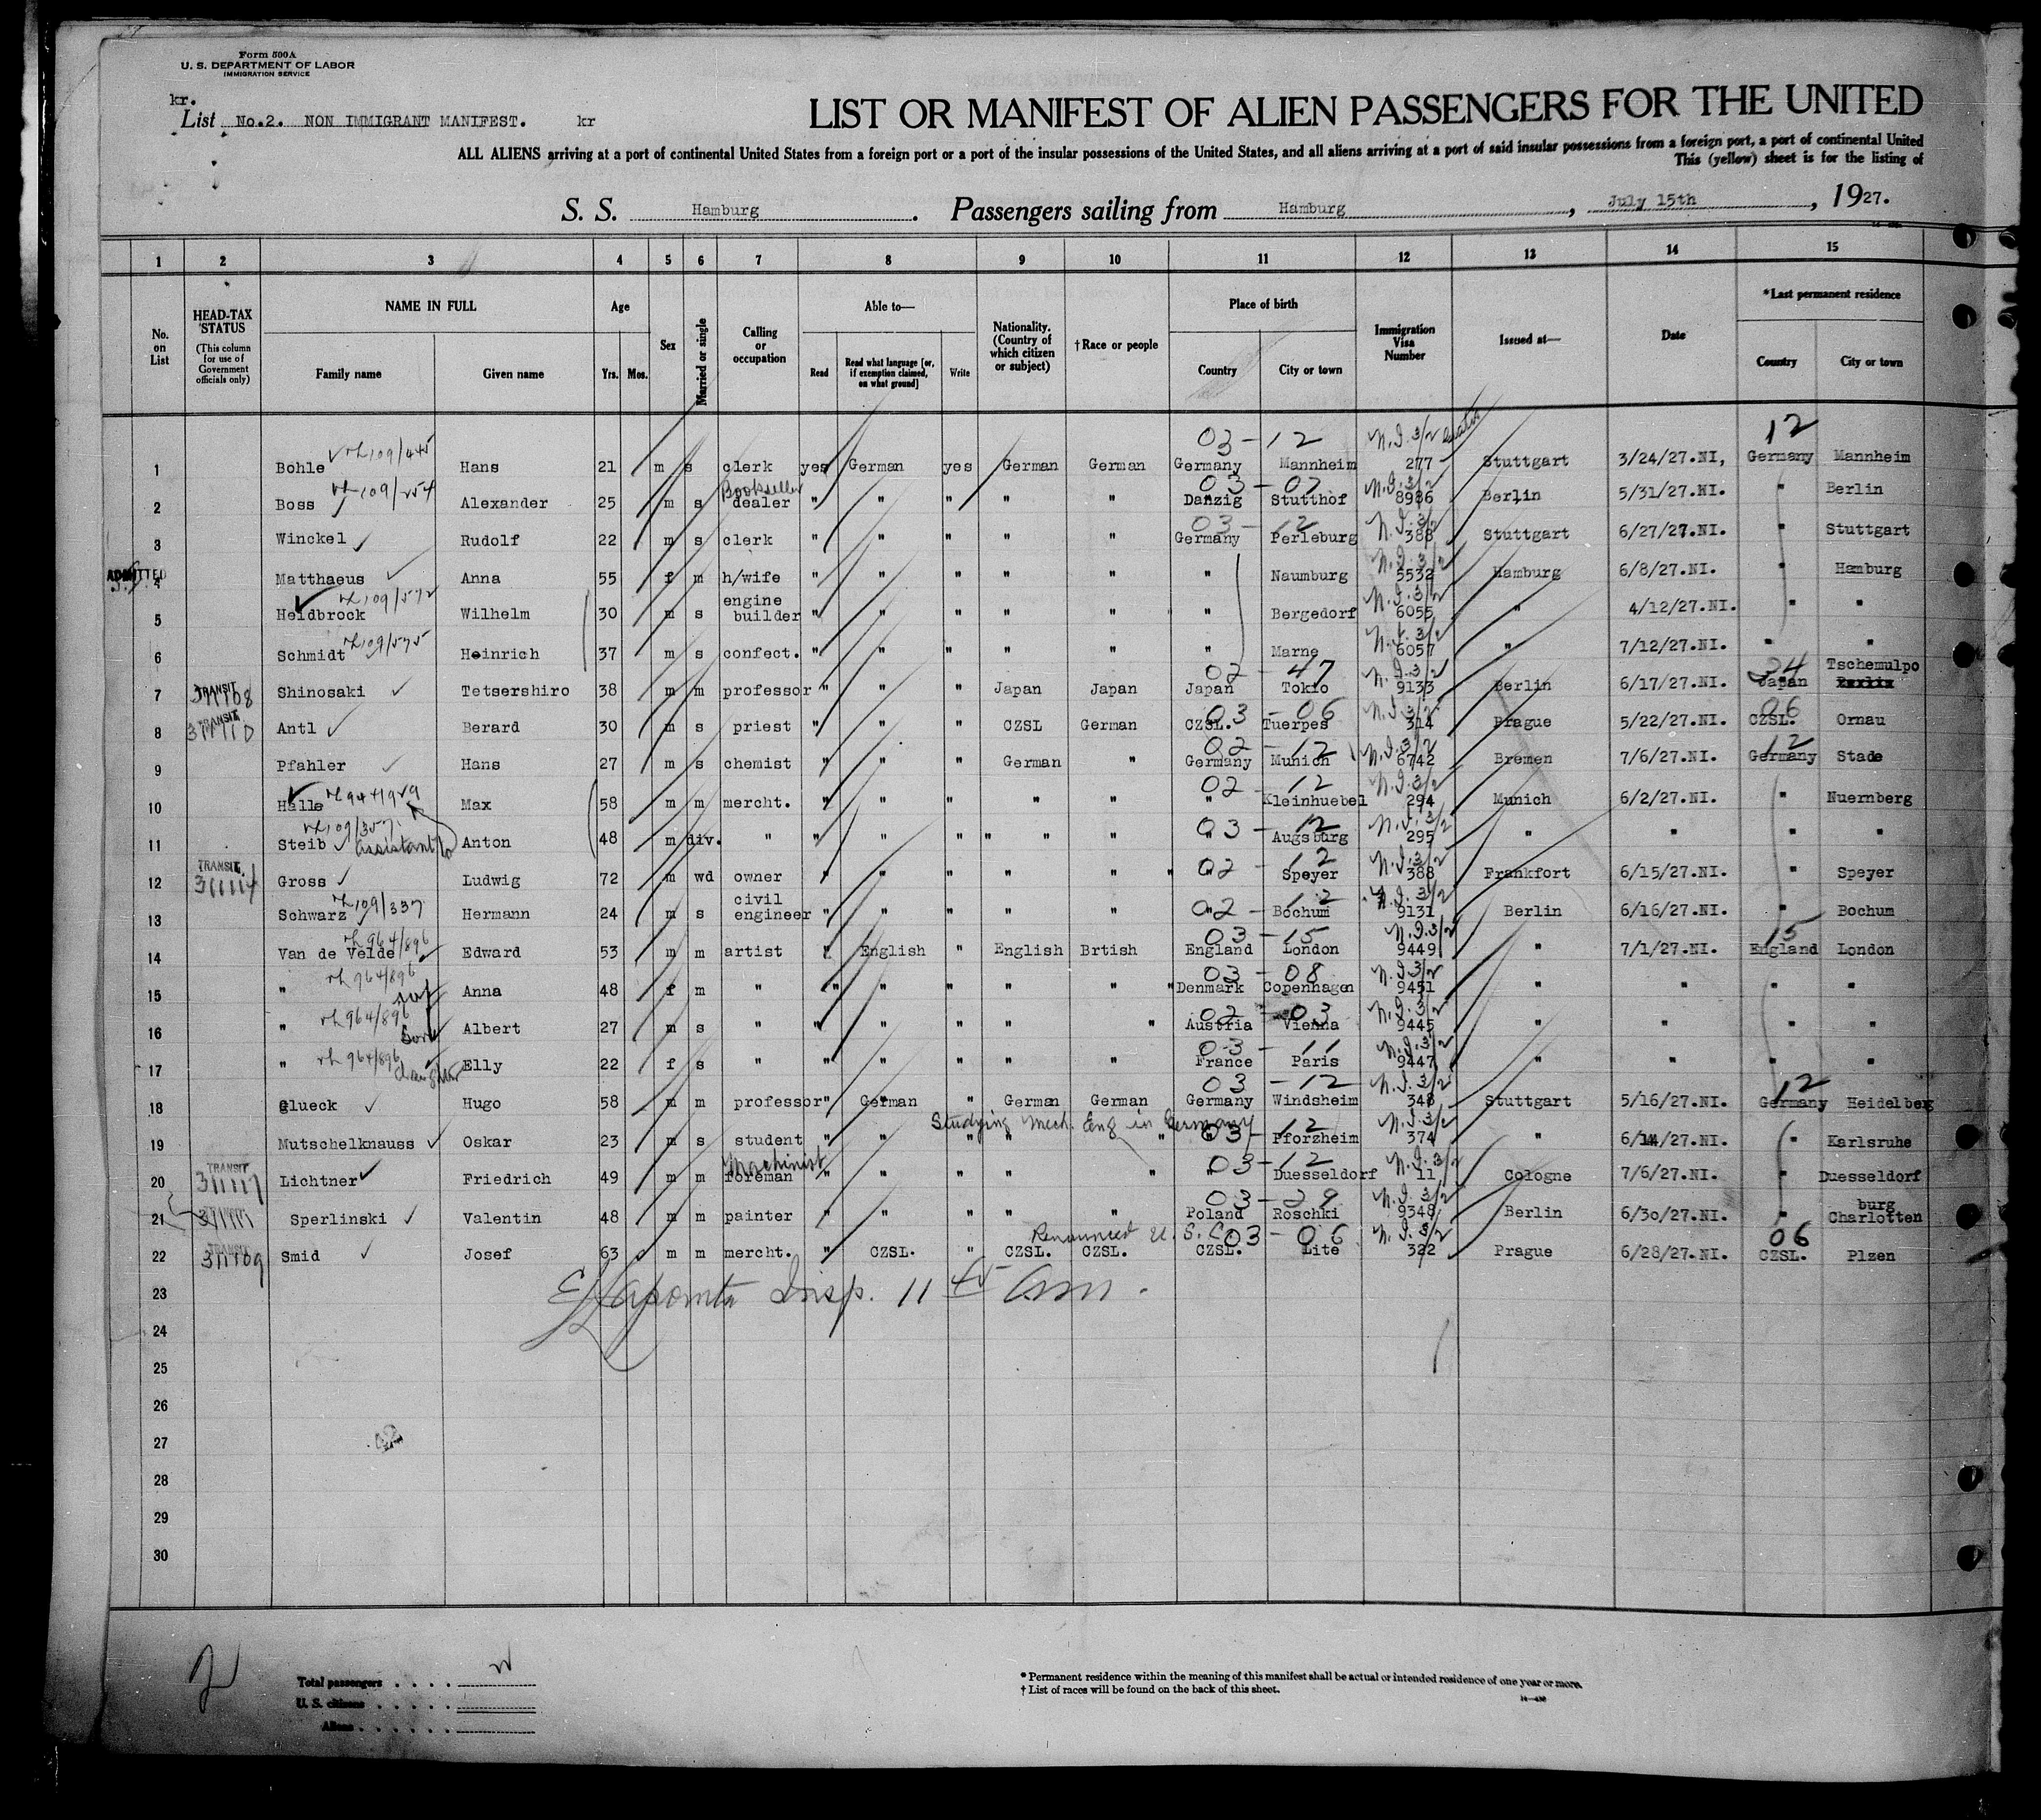 Form 500A
U. S. DEPARTMENT OF LABOR
IMMIGRATION SERVICE
kr.
List No.2. NON IMMIGRANT MANIFEST. kr
LIST OR MANIFEST OF ALIEN PASSENGERS FOR THE UNITED
ALL ALIENS arriving at a port of continental United States from a foreign port or a port of the insular possessions of the United States, and all aliens arriving at a port of said insular possessions from a foreign port, a port of continental United
This (yellow) sheet is for the listing of
S. S. Hamburg. Passengers sailing from Hamburg, July 15th, 1927.
1 2 3 4 5 6 7 8 9 10 11 12 13 14 15
No. on List
HEAD-TAX STATUS (This column for use of Government officials only)
NAME IN FULL Family name Given name
Age Yrs. Mos.
Sex
Married or single
Calling or occupation
Able to— Read Read what language [or, if exemption claimed, on what ground] Write
Nationality. (Country of which citizen or subject)
†Race or people
Place of birth Country City or town
Immigration Visa Number
Issued at—
Date
*Last permanent residence Country City or town
03-12 N.I. 3/2 12
1 Bohle 109/445 Hans 21 m s clerk yes German yes German German Germany Mannheim 277 Stuttgart 3/24/27.NI, Germany Mannheim
Bookseller 03-07 N.I. 3/2
2 Boss 109/254 Alexander 25 m s dealer " " " " " Danzig Stutthof 8986 Berlin 5/31/27.NI. " Berlin
03-12 N.I. 3/2
3 Winckel Rudolf 22 m s clerk " " " " " Germany Perleburg 388 Stuttgart 6/27/27.NI. " Stuttgart
ADMITTED N.I. 3/2
4 Matthaeus Anna 55 f m h/wife " " " " " " Naumburg 5532 Hamburg 6/8/27.NI. " Hamburg
109/572 engine N.I. 3/2
5 Heidbrock Wilhelm 30 m s builder " " " " " " Bergedorf 6055 " 4/12/27.NI. " "
109/575 N.I. 3/2
6 Schmidt Heinrich 37 m s confect. " " " " " " Marne 6057 " 7/12/27.NI. " "
TRANSIT 02-47 N.I. 3/2 24 Tschemulpo
7 311108 Shinosaki Tetsershiro 38 m m professor " " " Japan Japan Japan Tokio 9133 Berlin 6/17/27.NI. Japan
TRANSIT 03-06 N.I. 3/2 06
8 311110 Antl Berard 30 m s priest " " " CZSL German CZSL. Tuerpes 314 Prague 5/22/27.NI. CZSL. Ornau
02-12 N.I. 3/2 12
9 Pfahler Hans 27 m s chemist " " " German " Germany Munich 6742 Bremen 7/6/27.NI. Germany Stade
944/929 02-12 N.I. 3/2
10 Halle Max 58 m m mercht. " " " " " " Kleinhuebel 294 Munich 6/2/27.NI. " Nuernberg
109/357 03-12 N.I. 3/2
11 Steib assistant to Anton 48 m div. " " " " " " " " Augsburg 295 " " " "
TRANSIT. 02-12 N.I. 3/2
12 311114 Gross Ludwig 72 m wd owner " " " " " " Speyer 388 Frankfort 6/15/27.NI. " Speyer
109/337 civil 02-12 N.I. 3/2
13 Schwarz Hermann 24 m s engineer " " " " " " Bochum 9131 Berlin 6/16/27.NI. " Bochum
964/896 03-15 N.I. 3/2 15
14 Van de Velde Edward 53 m m artist " English " English Brtish England London 9449 " 7/1/27.NI. England London
964/896 03-08 N.I. 3/2
15 " Anna 48 f m " " " " " " Denmark Copenhagen 9451 " " " "
964/896 02-03 N.I. 3/2
16 " son Albert 27 m s " " " " " " Austria Vienna 9445 " " " "
964/896 03-11 N.I. 3/2
17 " daughter Elly 22 f s " " " " " " France Paris 9447 " " " "
03-12 N.I. 3/2 12
18 Glueck Hugo 58 m m professor " German " German German Germany Windsheim 348 Stuttgart 5/16/27.NI. Germany Heidelberg
Studying Mech. Eng in Germany N.I. 3/2
19 Mutschelknauss Oskar 23 m s student " " " " " " 03-12 Pforzheim 374 " 6/14/27.NI. " Karlsruhe
TRANSIT Machinist 03-12 N.I. 3/2
20 311117 Lichtner Friedrich 49 m m foreman " " " " " " Duesseldorf 11 Cologne 7/6/27.NI. " Duesseldorf
03-29 N.I. 3/2 burg
21 Sperlinski Valentin 48 m m painter " " " " " Poland Roschki 9348 Berlin 6/30/27.NI. " Charlotten
TRANSIT Renounced U.S.C. 03-06 N.I. 3/2 06
22 311109 Smid Josef 63 m m mercht. " CZSL. " CZSL. CZSL. CZSL. Lite 322 Prague 6/28/27.NI. CZSL. Plzen
23 Insp. 11 45 Am.
24
25
26
27
28
29
30
2
Total passengers . . . .
U. S. citizens . . . . .
Aliens . . . . . .
* Permanent residence within the meaning of this manifest shall be actual or intended residence of one year or more.
† List of races will be found on the back of this sheet.